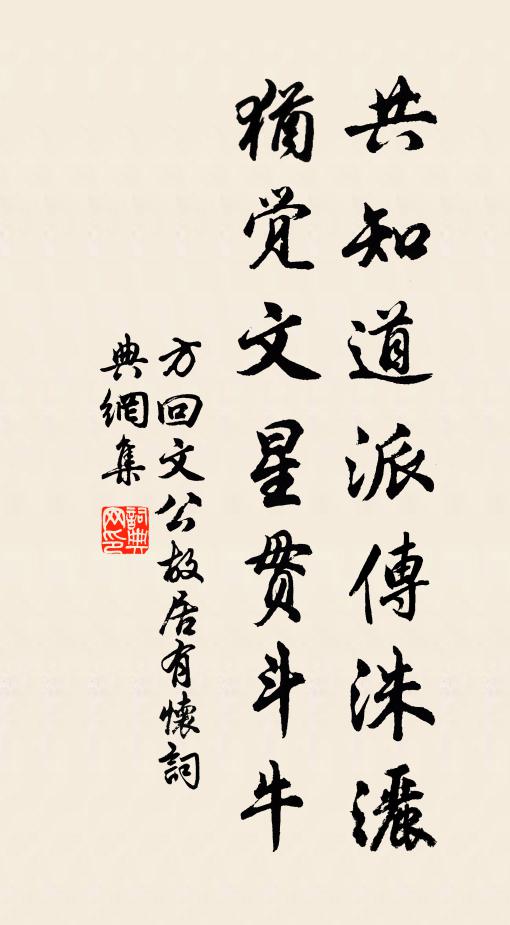 共知道派傳洙灑
猶觉文星貫斗牛
方回文公故居有懷詞
典網集
詞典
网印